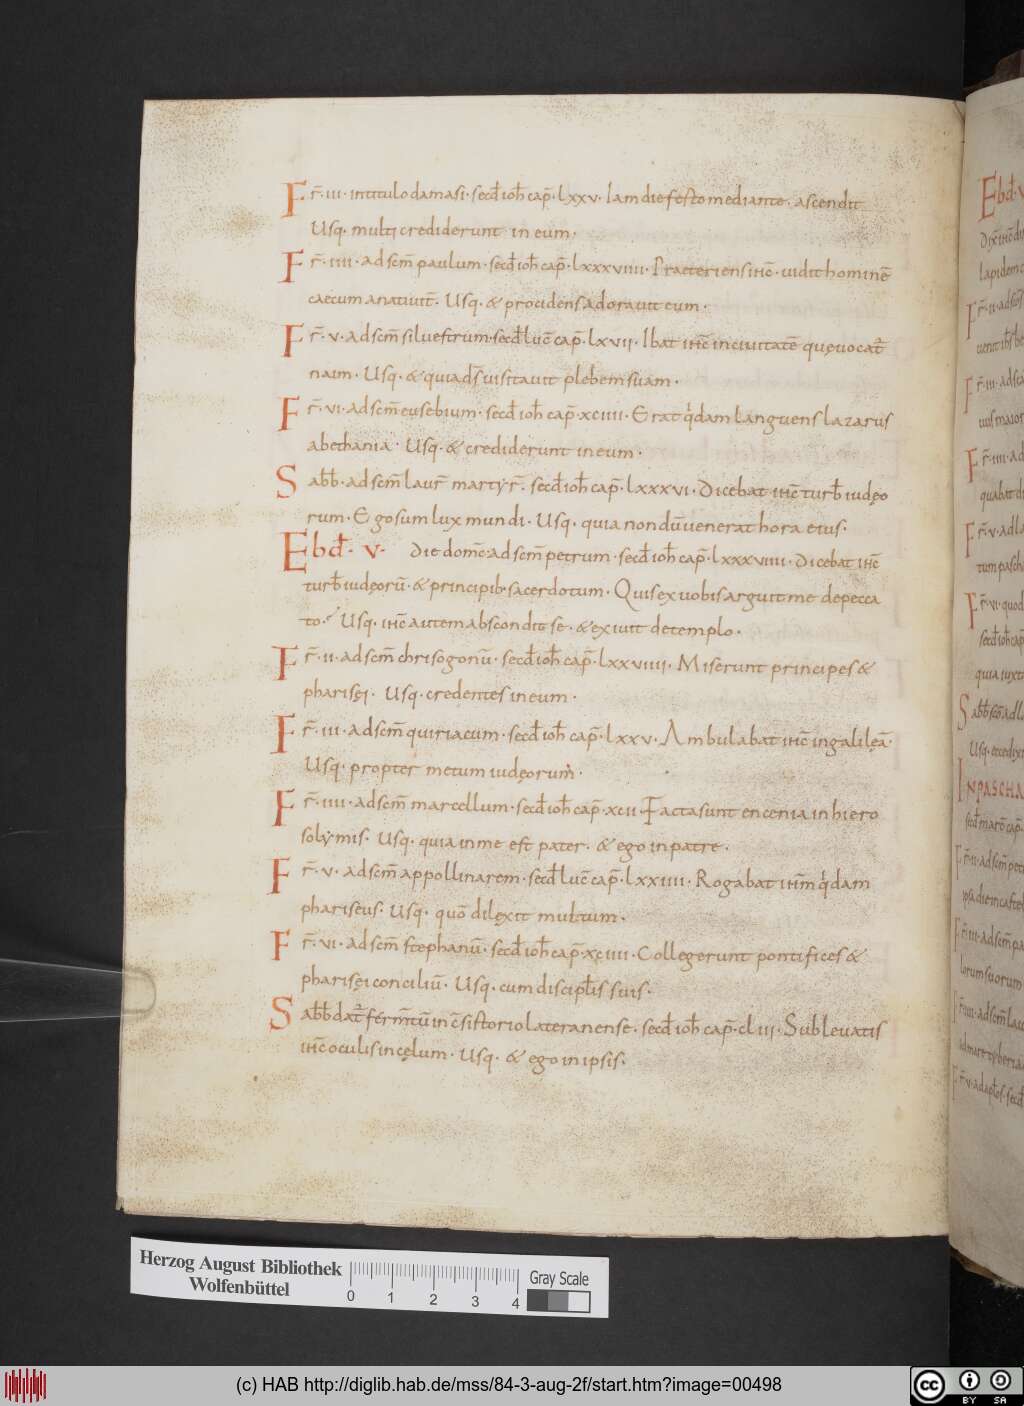 Fr̄. iii. intitulo damasi. secd̄ ioh̄ cap̄. lxxv. Iam die festo mediante. ascendit
Usq. multi crediderunt in eum.
Fr̄. iiii. ad scm̄ paulum. secd̄ ioh̄ cap̄. lxxxviiii. Praeteriens ih̄c. uidit hominē
caecum a natiuit̄. Usq. & procidens adorauit eum.
Fr̄. v. ad scm̄ siluestrum. secd̄ luc̄ cap̄. lxvii. Ibat ih̄c in ciuitatē quę uocat̄
naim. Usq. & quia d̄s uisitauit plebem suam.
Fr̄. vi. ad scm̄ eusebium. secd̄ ioh̄ cap̄. xciiii. Erat q̍dam languens lazarus
abethania. Usq. & crediderunt in eum.
Sabb̄. ad scm̄ laur̄ martyr̄. secd̄ ioh̄ cap̄. lxxxvi. Dicebat ih̄c turb̄ iudęo
rum. Ego sum lux mundi. Usq. quia nondū uenerat hora eius.
Ebd̄. v. Die domc̄. ad scm̄ petrum. secd̄ ioh̄ cap̄. lxxxviiii. Dicebat ih̄c
turb̄ iudęorū. & principib. sacerdotum. Quis ex uobis arguit me de pecca
to. Usq. ih̄c autem abscondit se. & exiuit de templo.
Fr̄. ii. ad scm̄ chrisogonū. secd̄ ioh̄ cap̄. lxxviiii. Miserunt principes &
pharisęi. Usq. credentes in eum.
Fr̄. iii. ad scm̄ quiriacum. secd̄ ioh̄ cap̄. lxxv. Ambulabat ih̄c in galilęā.
Usq. propter metum iudęorum.
Fr̄. iiii. ad scm̄ marcellum. secd̄ ioh̄ cap̄. xcii. Facta sunt encenia in hiero
solymis. Usq. quia in me est pater. & ego in patre.
Fr̄. v. ad scm̄ appollinarem. secd̄ luc̄ cap̄. lxxiiii. Rogabat ih̄m q̍dam
phariseus. Usq. quō dilexit multum.
Fr̄. vi. ad scm̄ stephanū. secd̄ ioh̄ cap̄. xciiii. Collegerunt pontifices &
pharisęi conciliū. Usq. cum discipl̄is suis.
Sabb̄ dat̄ fermtū in c̄sistorio lateranense. secd̄ ioh̄ cap̄. cliii. Subleuatis
ih̄c oculis in cęlum. Usq. & ego in ipsis.
Herzog August Bibliothek
Wolfenbüttel
0 1 2 3 4
Gray Scale
(c) HAB http://diglib.hab.de/mss/84-3-aug-2f/start.htm?image=00498
cc BY SA